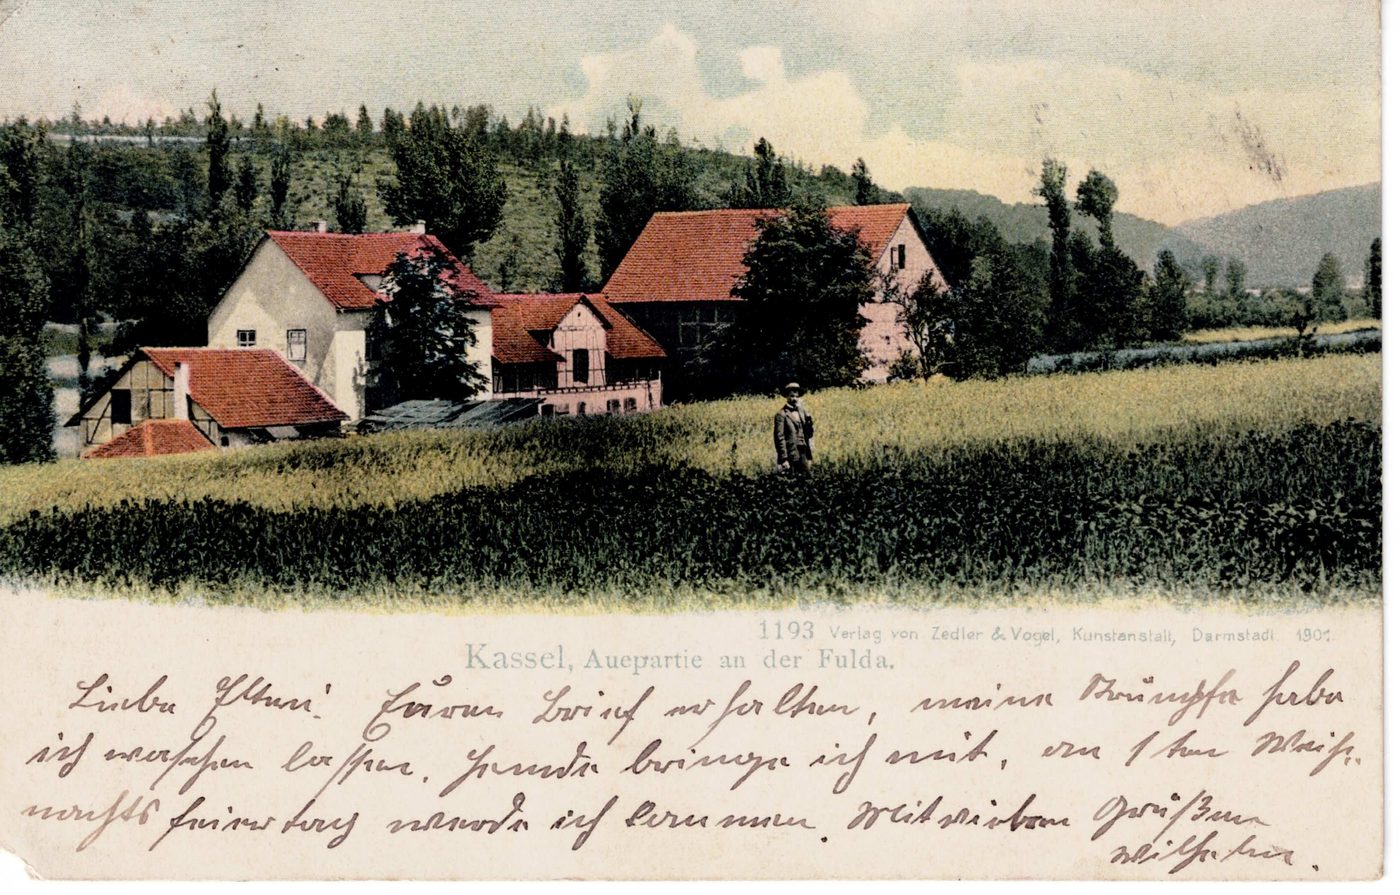 1193 Verlag von Zedler & Vogel, Kunstanstalt, Darmstadt 1901.
Kassel, Auepartie an der Fulda.
Liebe Eltern! Euren Brief erhalten, meine Strümpfe habe
ich waschen lassen. Hemde bringe ich mit, am 1ten Weih-
nachtsfeiertag werde ich kommen. Mit vielen Grüßen
Wilhelm.